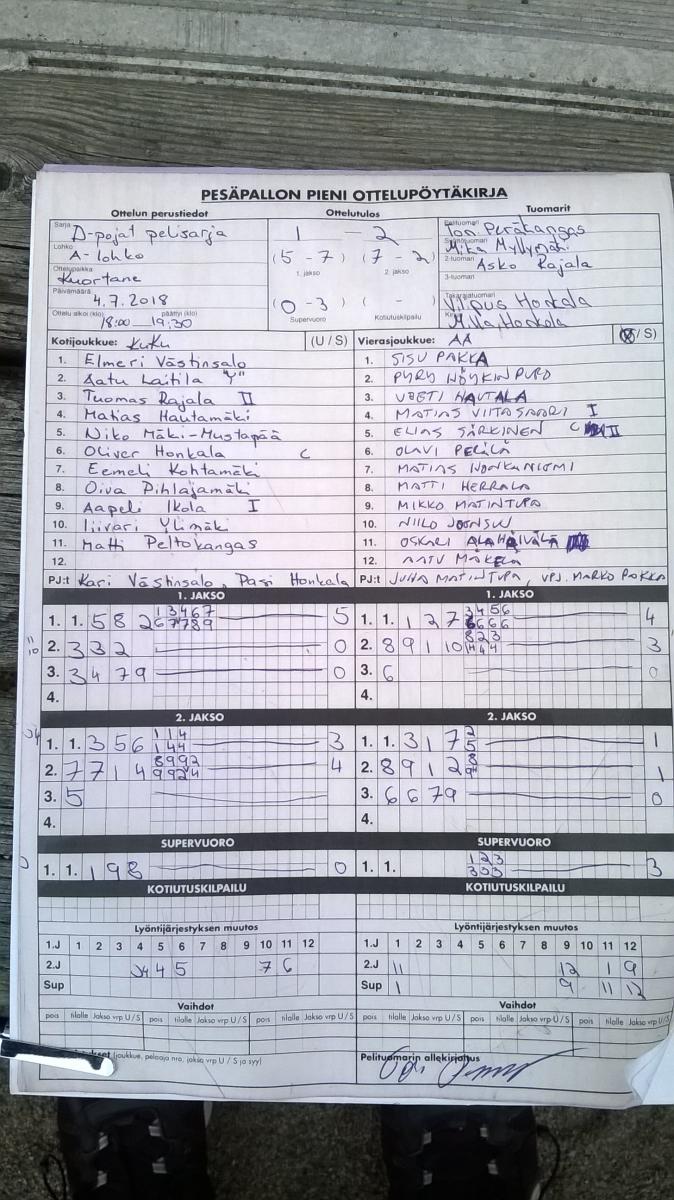 PESÄPALLON PIENI OTTELUPÖYTÄKIRJA
Ottelun perustiedot Ottelutulos Tuomarit
Sarja D-pojat pelisarja
Lohko A-lohko
Ottelupaikka Kuortane
Päivämäärä 4.7.2018
Ottelu alkoi (klo) 18:00 päättyi (klo) 19:30
1 - 2
(5 - 7) (7 - 2)
1. jakso 2. jakso
(0 - 3) ( - )
Supervuoro Kotiutuskilpailu
Peräkangas
Mika Myllymäki
2-tuomari Asko Rajala
3-tuomari
Takarajatuomari Honkala
Milla Honkala
Kotijoukkue: KuKu (U / S)
1. Elmeri Västinsalo
2. Aatu Laitila "Y"
3. Tuomas Rajala II
4. Matias Hautamäki
5. Niko Mäki-Mustapää
6. Oliver Honkala C
7. Eemeli Kohtamäki
8. Oiva Pihlajamäki
9. Aapeli Ikola I
10. Iivari Ylimäki
11. Matti Peltokangas
12.
PJ:t Kari Västinsalo, Pasi Honkala
Vierasjoukkue: AA / S)
1. SISU PAKKA
2. PYRY
3. VEETI HAUTALA
4. MATIAS VIITASAARI I
5. ELIAS SÄRKINEN C II
6. OLAVI PERÄLÄ
7. MATIAS
8. MATTI HERRALA
9. MIKKO MATINTUPA
10. NIILO
11. OSKARI
12. AATU MÄKELÄ
PJ:t JUHA MATINTUPA, VPJ. MARKO PAKKA
1. JAKSO
1. 1. 5 8 2 5
2. 3 3 2 0
3. 3 4 7 9 0
4.
1. JAKSO
1. 1. 1 2 7 4
2. 8 9 1 10 3
3. 6 0
4.
2. JAKSO
1. 1. 3 5 6 3
2. 7 7 1 4 4
3. 5
4.
2. JAKSO
1. 1. 3 1 7 1
2. 8 9 1 2 1
3. 6 6 7 9 0
4.
SUPERVUORO
1. 1. 1 9 8 0
SUPERVUORO
1. 1. 1 2 3 3
KOTIUTUSKILPAILU
KOTIUTUSKILPAILU
Lyöntijärjestyksen muutos
1.J 1 2 3 4 5 6 7 8 9 10 11 12
2.J 4 5 7 6
Sup
Lyöntijärjestyksen muutos
1.J 1 2 3 4 5 6 7 8 9 10 11 12
2.J 11 12 1 9
Sup 1 9 11 12
Vaihdot
pois tilalle Jakso vrp U / S pois tilalle Jakso vrp U / S pois tilalle Jakso vrp U / S
Vaihdot
pois tilalle Jakso vrp U / S pois tilalle Jakso vrp U / S pois tilalle Jakso vrp U / S
(joukkue, pelaaja nro, jakso vrp U / S ja syy)
Pelituomarin allekirjoitus